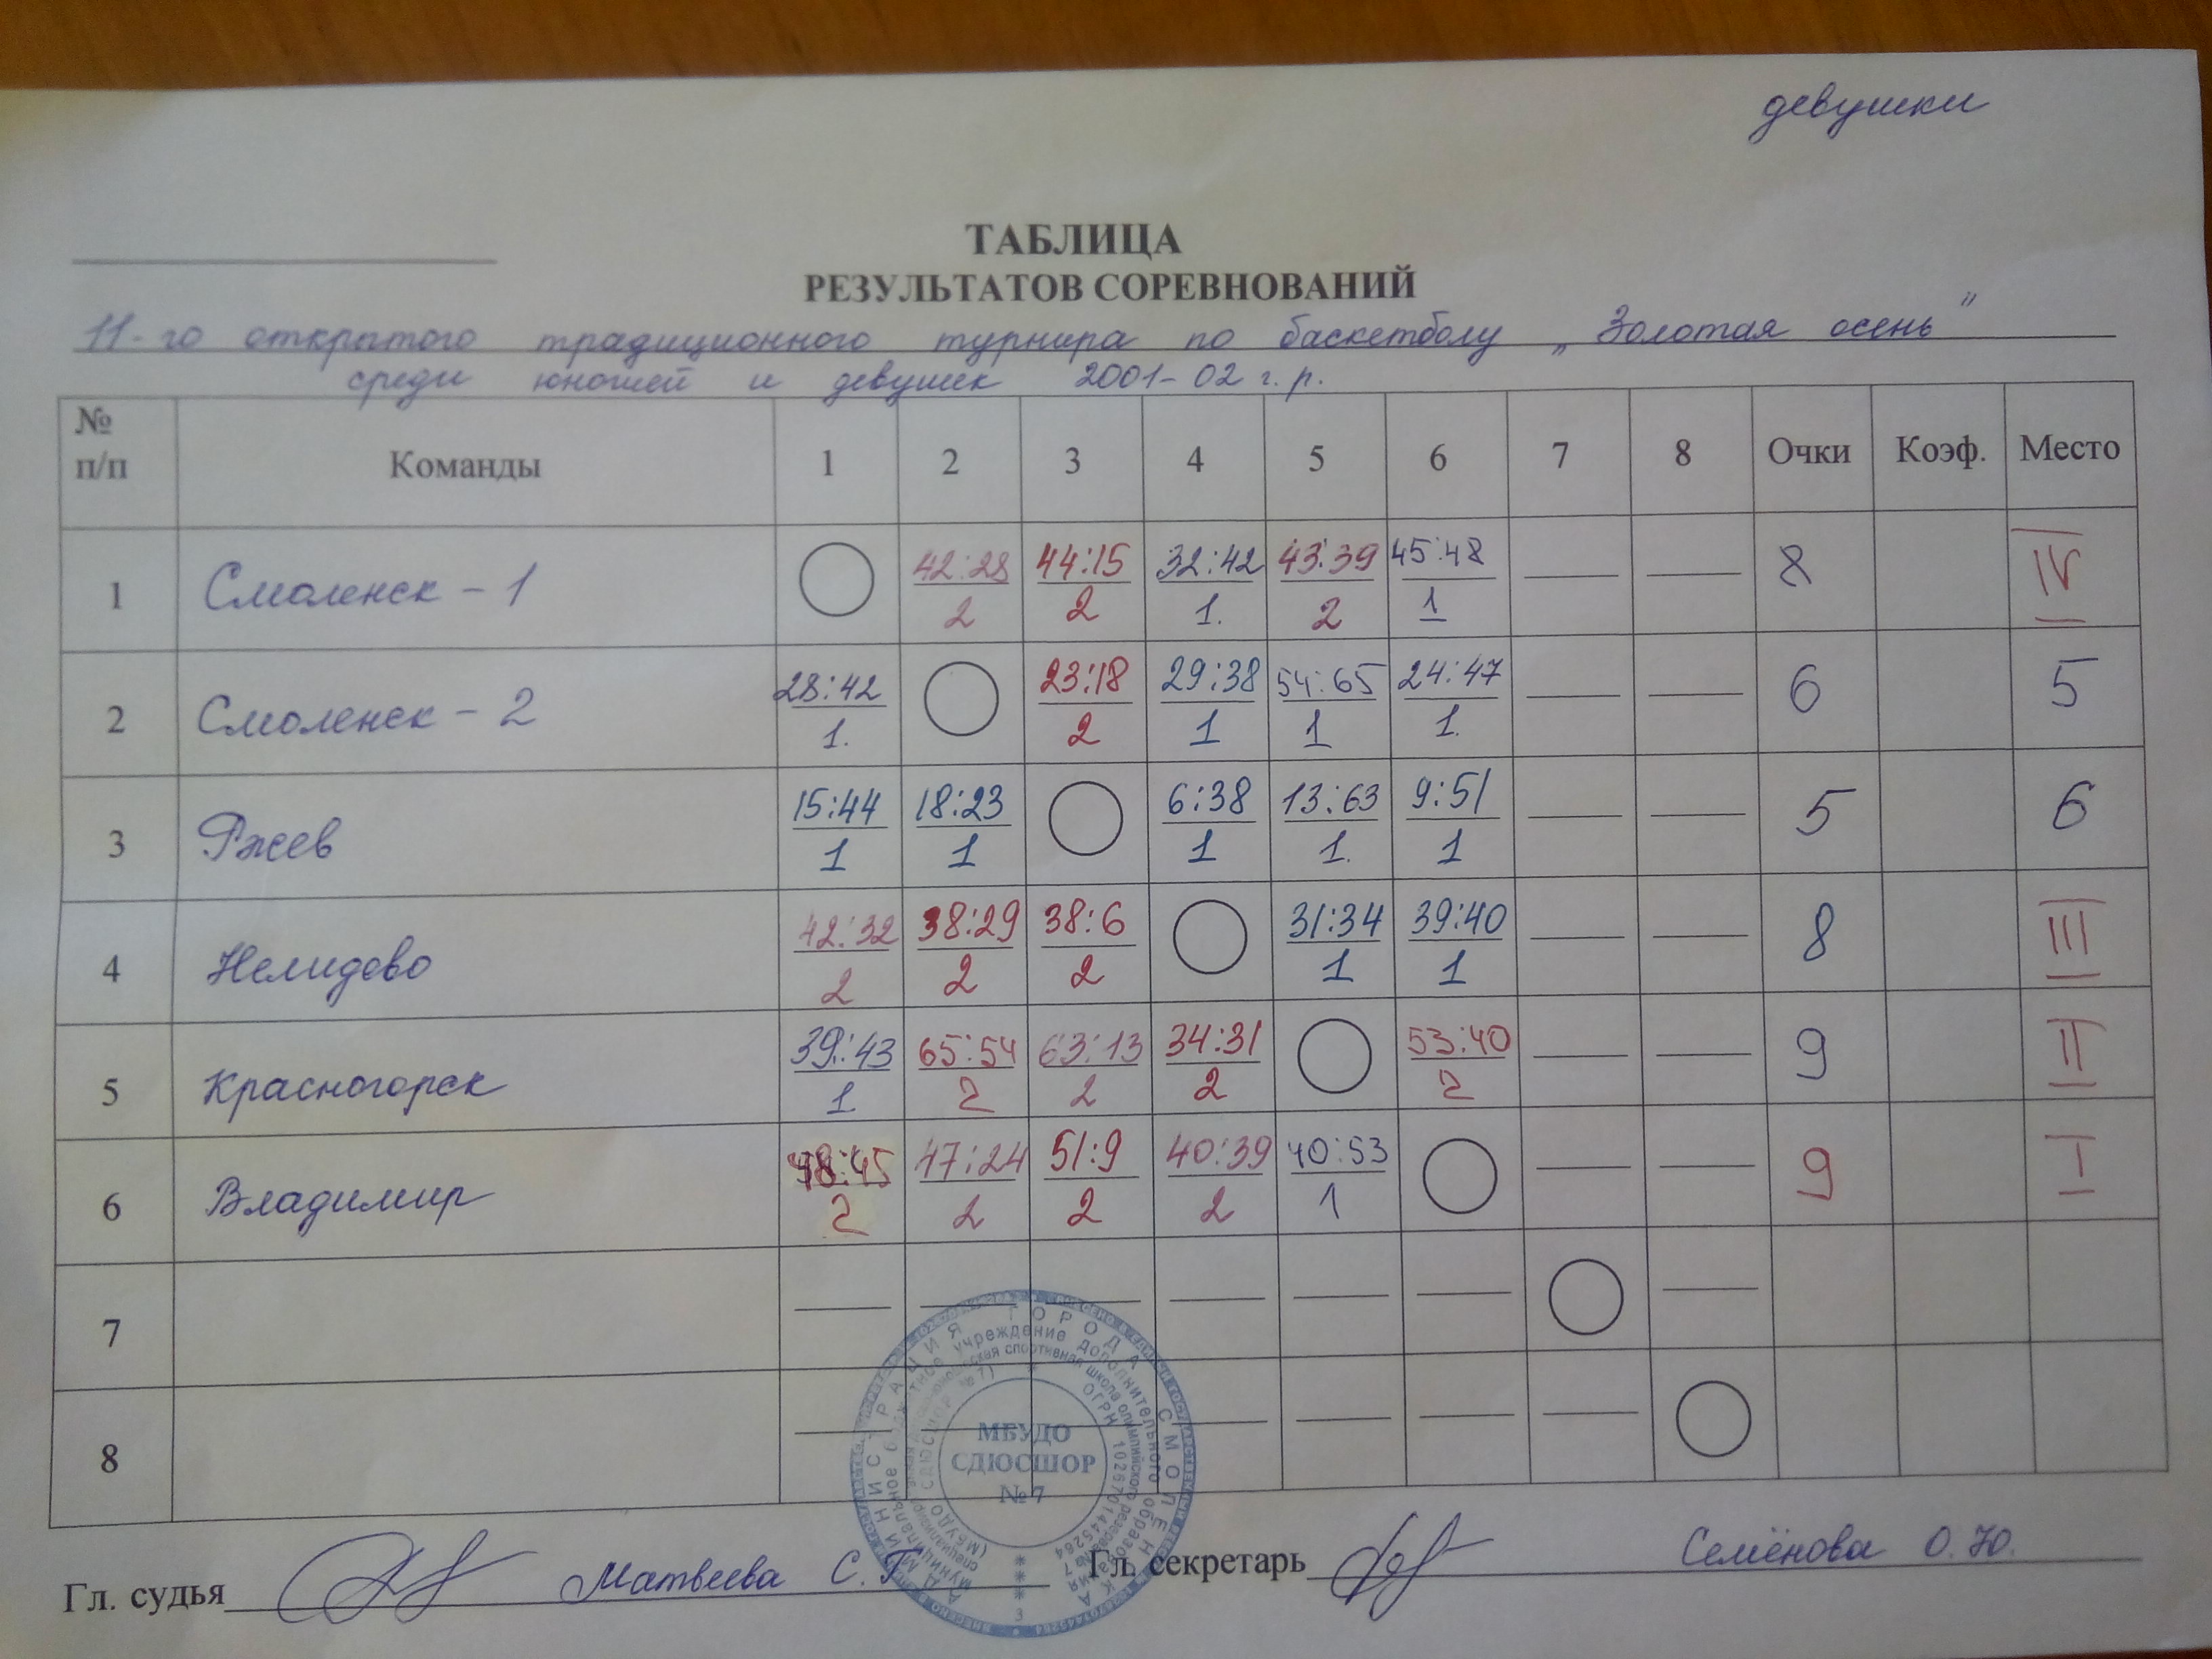 девушки
ТАБЛИЦА
РЕЗУЛЬТАТОВ СОРЕВНОВАНИЙ
11-го открытого традиционного турнира по баскетболу „Золотая осень"
среди юношей и девушек 2001-02 г.р.
№ п/п Команды 1 2 3 4 5 6 7 8 Очки Коэф. Место
1 Смоленск - 1 42:28 44:15 32:42 43:39 45:48 8 IV
2 2 1. 2 1
2 Смоленск - 2 28:42 23:18 29:38 54:65 24:47 6 5
1. 2 1 1 1.
3 Ржев 15:44 18:23 6:38 13:63 9:51 5 6
1 1 1 1. 1
4 Нелидово 42:32 38:29 38:6 31:34 39:40 8 III
2 2 2 1 1
5 Красногорск 39:43 65:54 63:13 34:31 53:40 9 II
1 2 2 2 2
6 Владимир 48:45 47:24 51:9 40:39 40:53 9 I
2 2 2 2 1
7
8
МБУДО
СДЮСШОР
№ 7
Гл. судья Матвеева С.Г. Гл. секретарь Семёнова О.Ю.